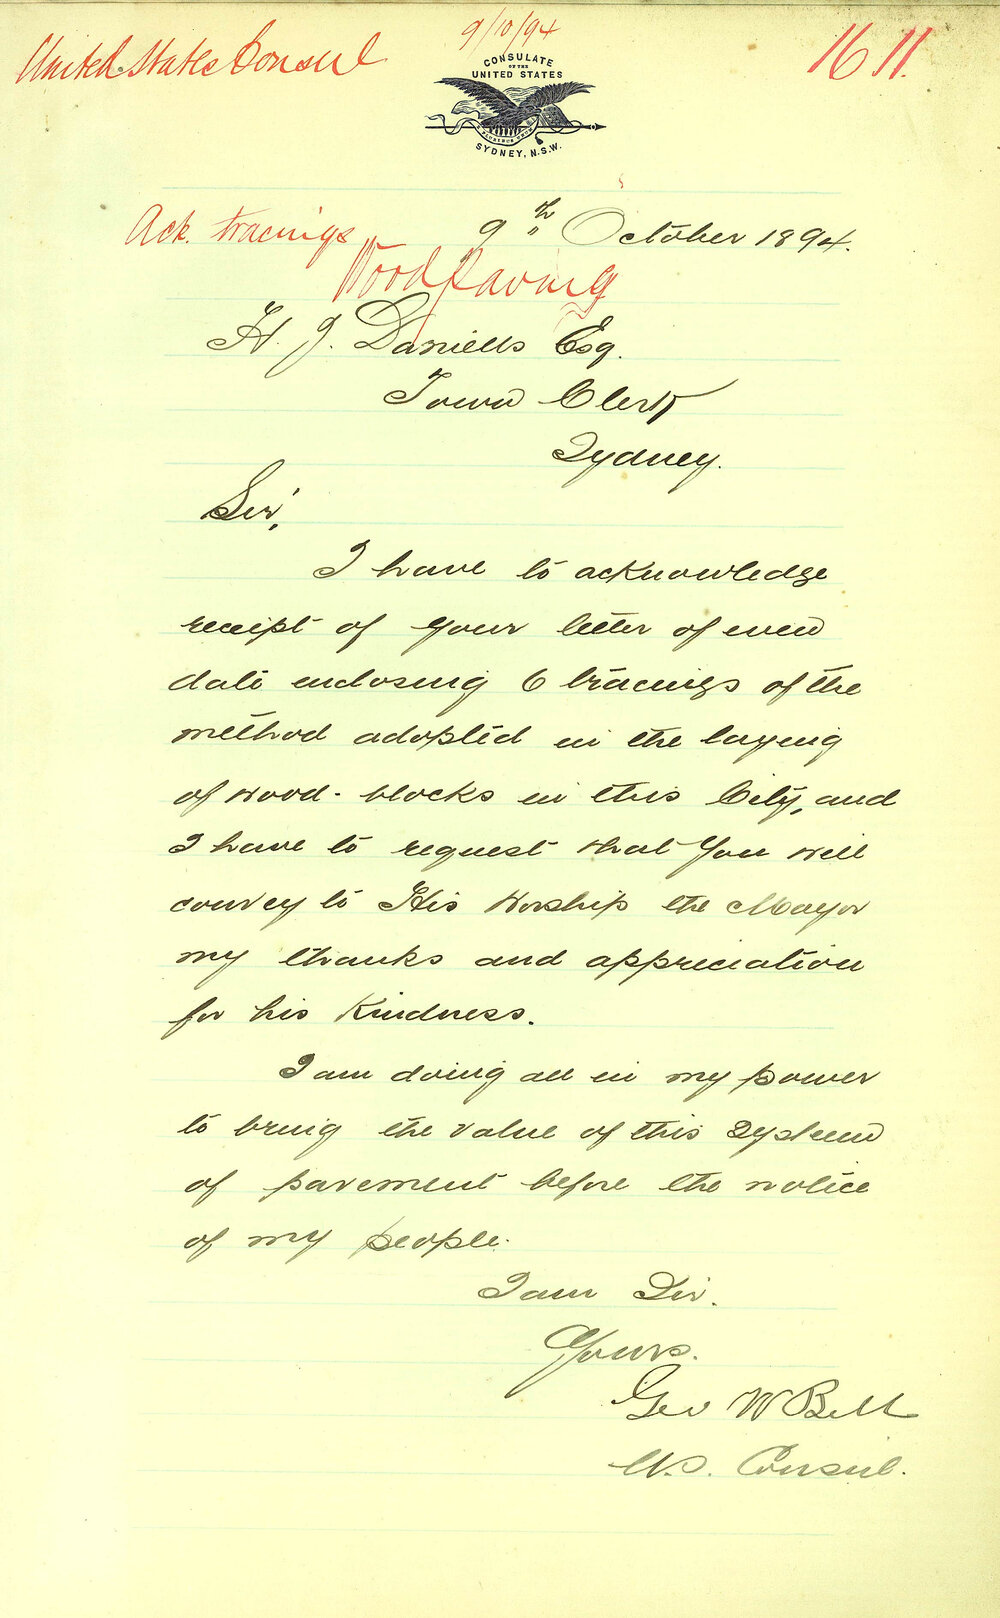 9/10/94
United States Consul
1611.
CONSULATE
OF THE
UNITED STATES
SYDNEY, N.S.W.
9th October 1894.
Ack. tracings
Wood Paving
H. J. Daniells Esq.
Town Clerk
Sydney.
Sir,
I have to acknowledge
receipt of your letter of even
date enclosing 6 tracings of the
method adopted in the laying
of wood-blocks in this City, and
I have to request that you will
convey to His Worship the Mayor
my thanks and appreciation
for his kindness.
I am doing all in my power
to bring the value of this system
of pavement before the notice
of my people.
I am Sir.
Yours.
Geo W Bell
U.S. Consul.